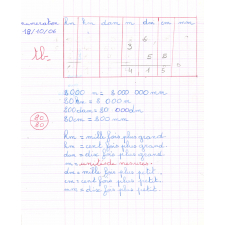 numération km hm dam m dm cm mm
18/10/06
3 6
5 8
4 1 5
8000 m = 8 000 000 mm
80 hm = 8 000 m
800 dam = 80 000 dm
80 cm = 800 mm
20
20
km = mille fois plus grand
hm = cent fois plus grand
dam = dix fois plus grand
m = unité de mesure
dm = mille fois plus petit
cm = cent fois plus petit
mm = dix fois plus petit